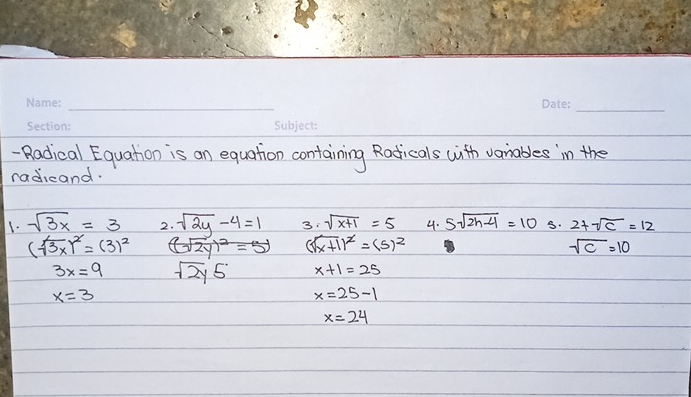 Name:
Date:
Section:
Subject:
-Radical Equation is an equation containing Radicals with variables in the
radicand.
1. √3x = 3 2. √2y -4=1 3. √x+1 = 5 4. 5√2h-4 = 10 5. 2+√c = 12
(√3x)² = (3)² (√2y)² = 5) (√x+1)² = (5)² √c = 10
3x = 9 √2y 5 x+1 = 25
x = 3 x = 25-1
x = 24